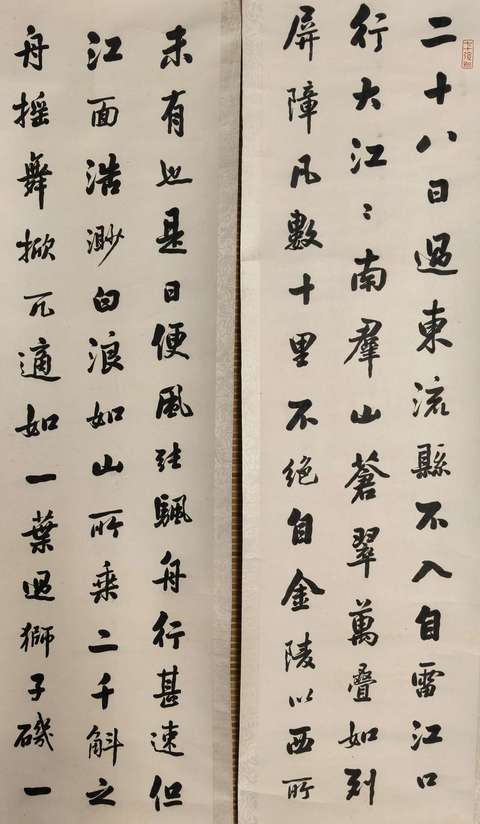 二十八日過東流縣不入自雷江口
行大江〻南羣山蒼翠萬疊如列
屏障凡數十里不絕自金陵以西所
未有也是日便風張颿舟行甚速但
江面浩渺白浪如山所乘二千斛之
舟搖舞掀兀適如一葉過獅子磯一